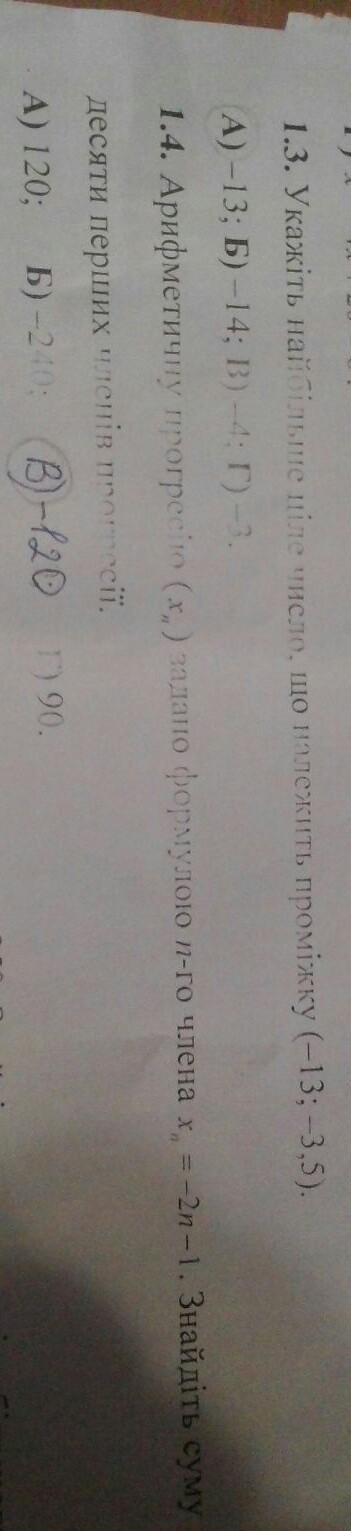 1.3. Укажіть найбільше ціле число, що належить проміжку (–13; –3,5).
А) –13; Б) –14; В) –4; Г) –3.
1.4. Арифметичну прогресію (xₙ) задано формулою n-го члена xₙ = –2n – 1. Знайдіть суму
десяти перших членів прогресії.
А) 120; Б) –240; В) –120 Г) 90.